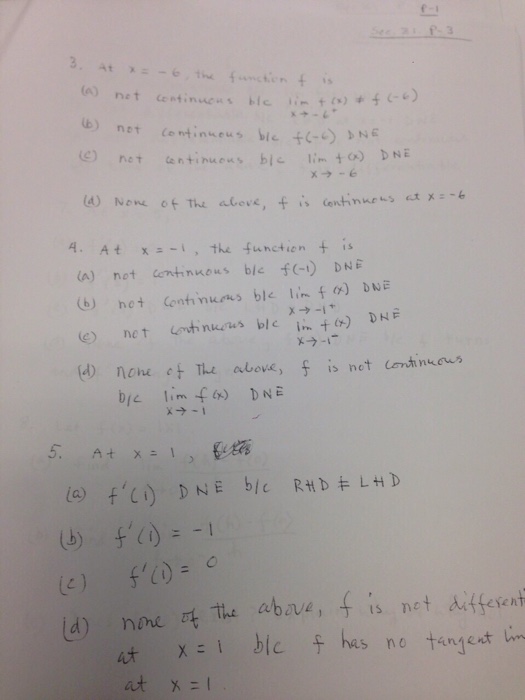 P-1
P-3
3. At x = -6, the function f is
(a) not continuous b/c lim f(x) ≠ f(-6)
x→-6⁺
(b) not continuous b/c f(-6) DNE
(c) not continuous b/c lim f(x) DNE
x→-6
(d) None of the above, f is continuous at x = -6
4. At x = -1, the function f is
(a) not continuous b/c f(-1) DNE
(b) not continuous b/c lim f(x) DNE
x→-1⁺
(c) not continuous b/c lim f(x) DNE
x→-1⁻
(d) none of the above, f is not continuous
b/c lim f(x) DNE
x→-1
5. At x = 1,
(a) f'(1) DNE b/c RHD ≠ LHD
(b) f'(1) = -1
(c) f'(1) = 0
(d) none of the above, f is not different
at x = 1 b/c f has no tangent lin
at x = 1.